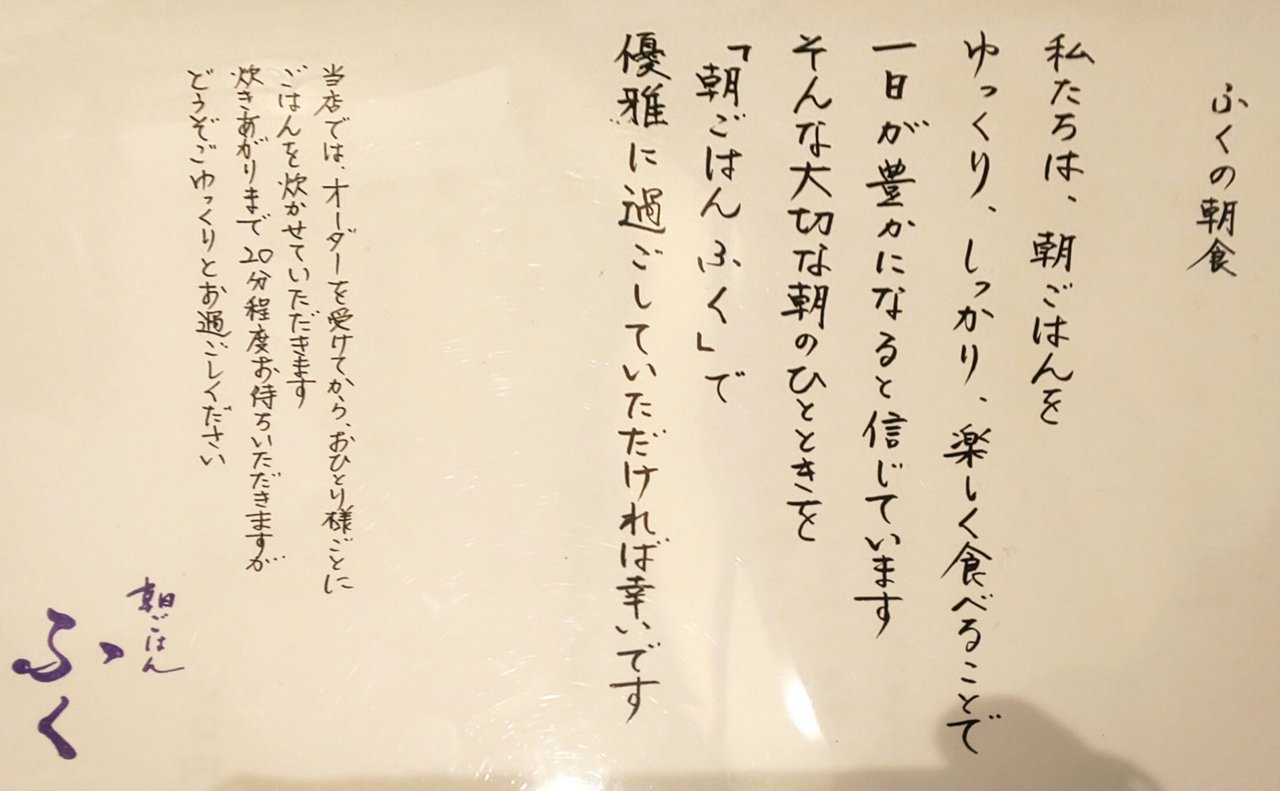 ふくの朝食
私たちは、朝ごはんを
ゆっくり、しっかり、楽しく食べることで
一日が豊かになると信じています
そんな大切な朝のひとときを
「朝ごはんふく」で
優雅に過ごしていただければ幸いです
当店では、オーダーを受けてから、おひとり様ごとに
ごはんを炊かせていただきます
炊きあがりまで20分程度お待ちいただきますが
どうぞごゆっくりとお過ごしください
朝ごはん
ふく